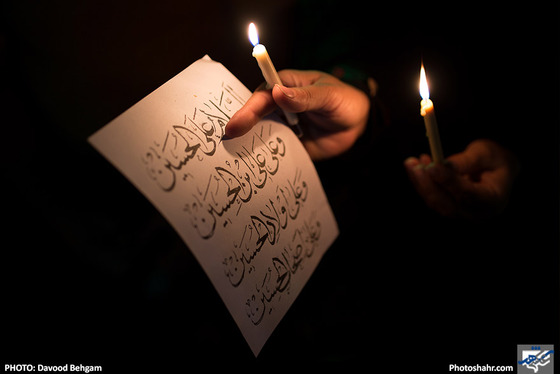 السلام على الحسين
وعلى علي بن الحسين
وعلى اولاد الحسين
وعلى اصحاب الحسين
PHOTO: Davood Behgam
Photoshahr.com